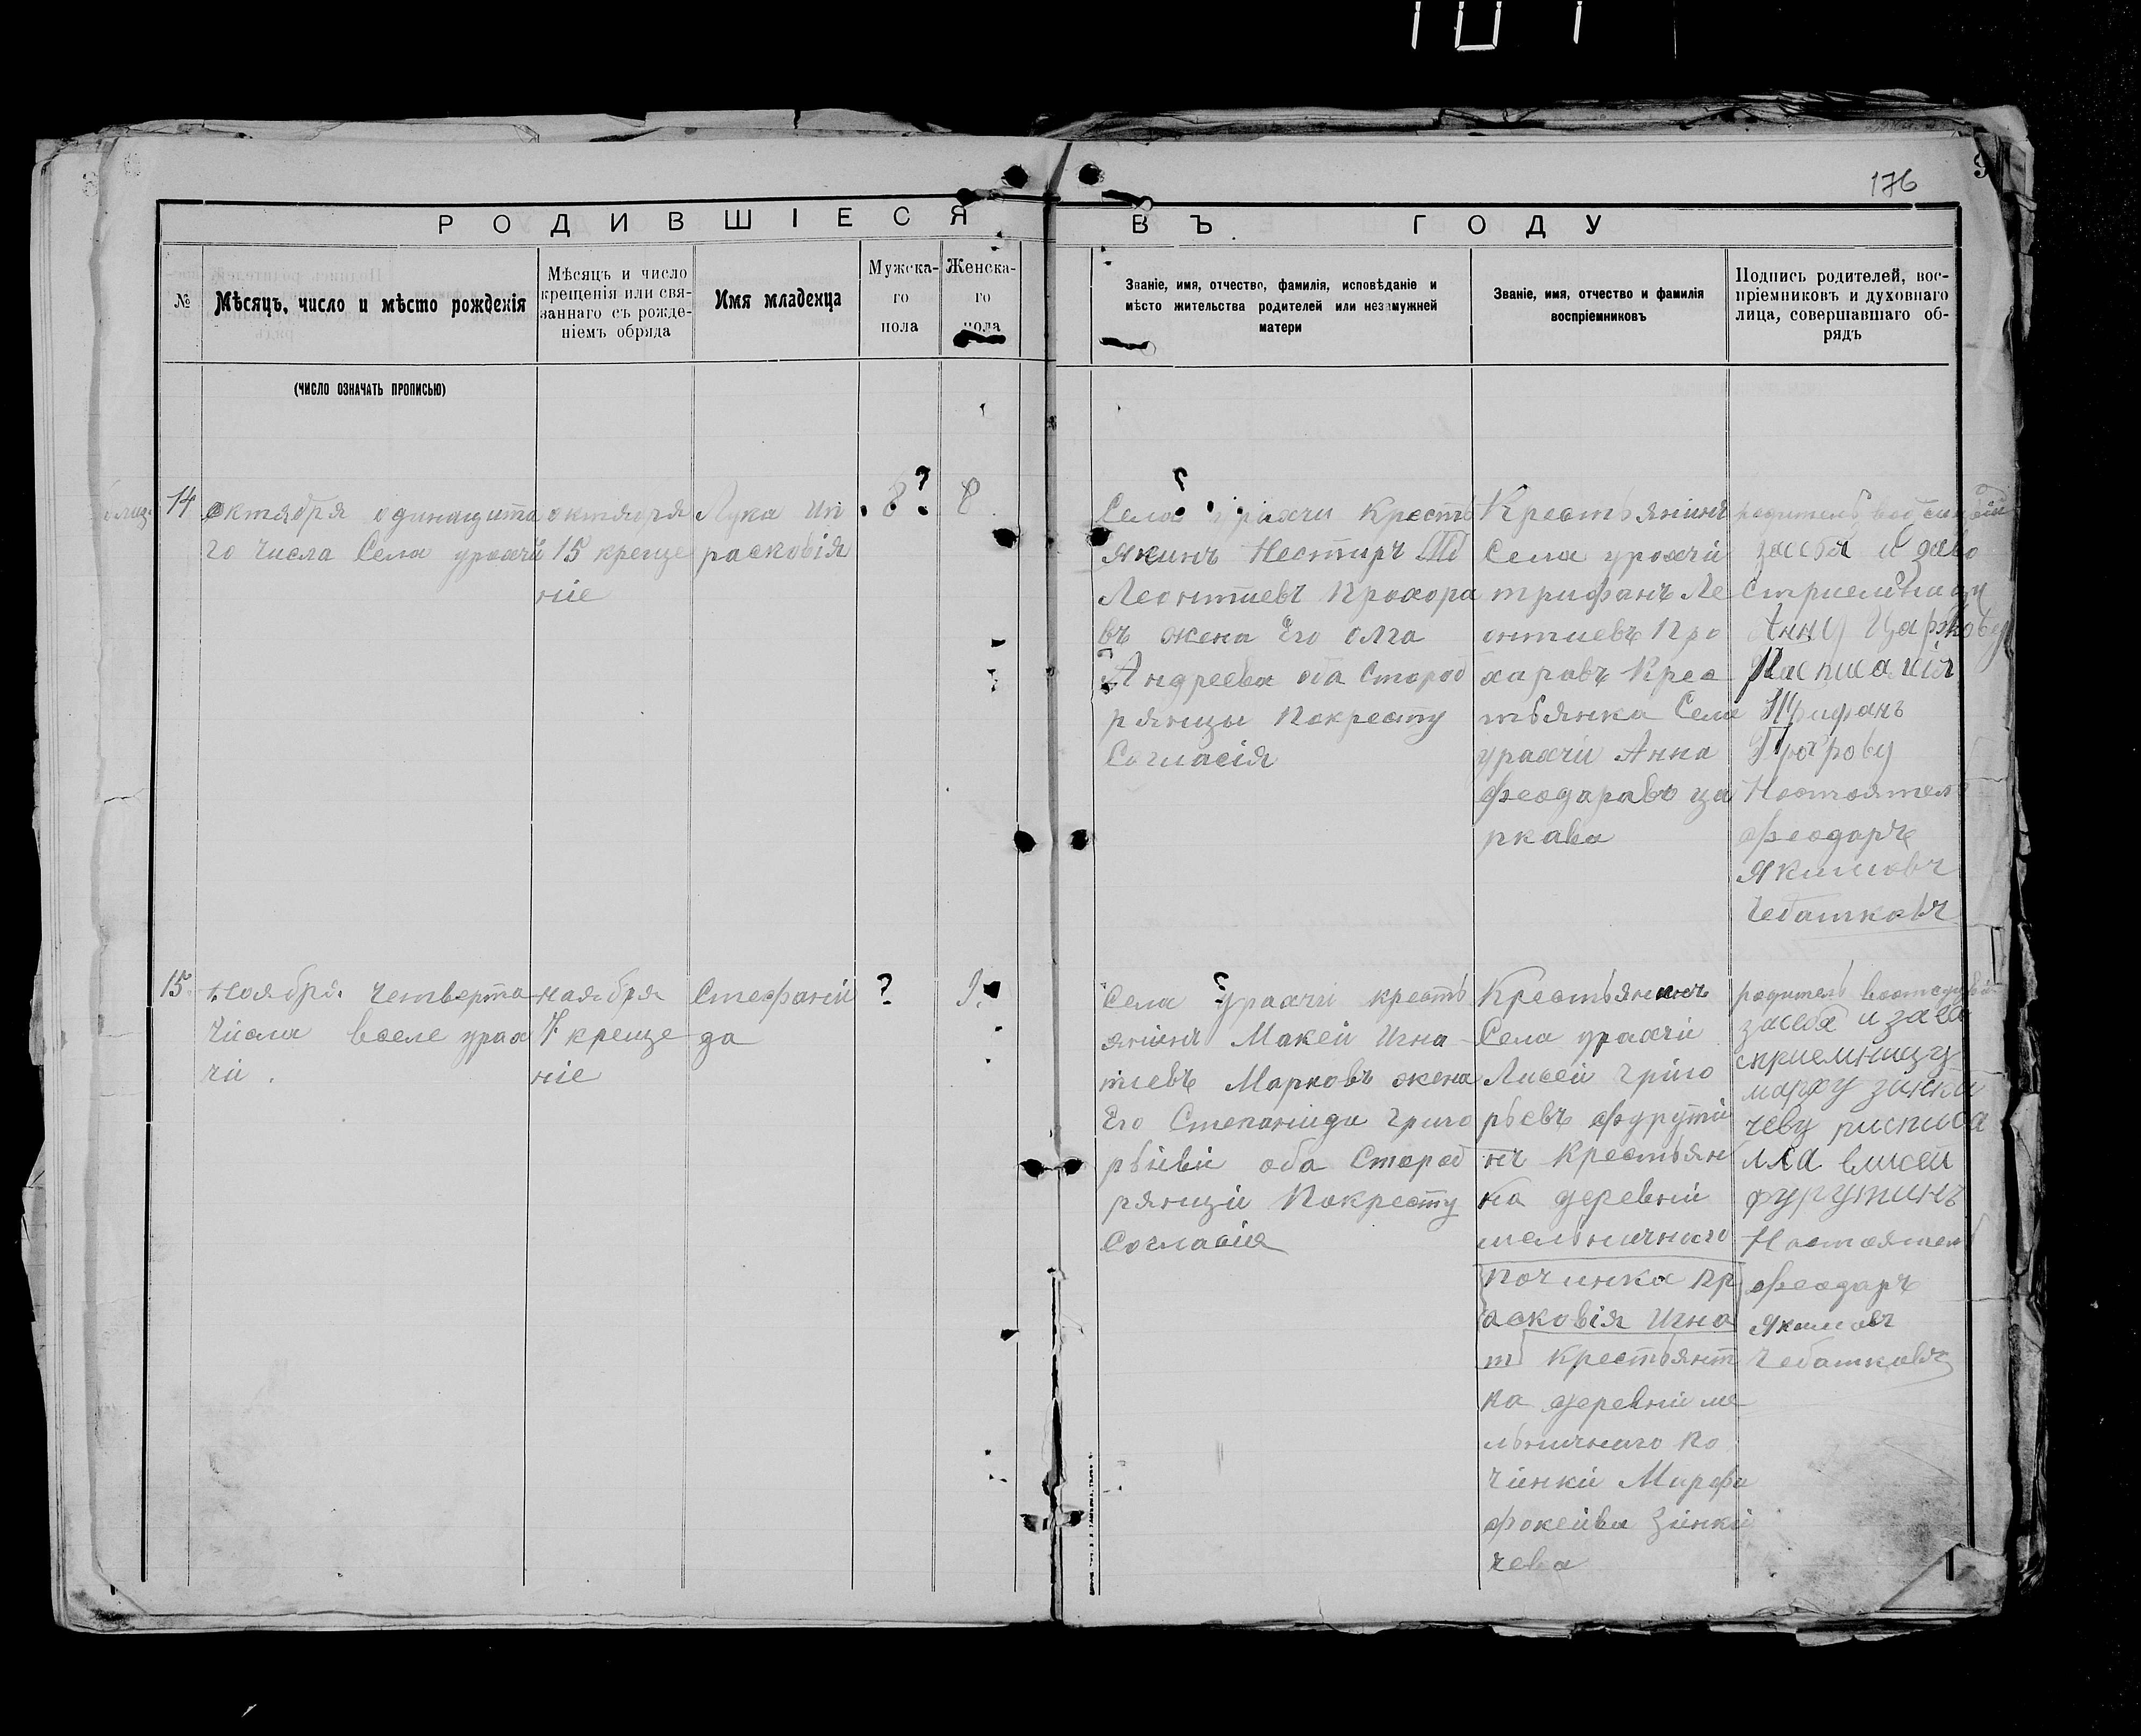 176
РОДИВШІЕСЯ ВЪ ГОДУ
№
Мѣсяцъ, число и мѣсто рожденія
Мѣсяцъ и число
крещенія или свя-
заннаго съ рожде-
ніемъ обряда
Имя младенца
Мужска-
го
пола
Женска-
го
пола
Званіе, имя, отчество, фамилія, исповѣданіе и
мѣсто жительства родителей или незамужней
матери
Званіе, имя, отчество и фамилія
воспріемниковъ
Подпись родителей, вос-
пріемниковъ и духовнаго
лица, совершавшаго об-
рядъ
(ЧИСЛО ОЗНАЧАТЬ ПРОПИСЬЮ)
14
октября одинацита
го числа Села урахчи
октября
15 креще
ніе
Лука ип
расковія
8 ?
8
Села урахчи Кресть
янинъ Нестиръ
Леонтиевъ Прохора
въ жена Его олга
Андреева оба Староб
рянцы Покресту
Согласія
Крестьянинъ
Села урахчи
трифанъ Ле
онтиевъ Про
харавъ Крес
тьянка Села
урахчи Анна
феодаравъ ца
ркава
родитель
засебя и заво
стриемницу
Анну Царкову
Трифанъ
Настоятель
феодаръ
Якимовъ
Чебатковъ
15
ноября четверта
числа вселе урах
чи.
наября
7 креще
ніе
Стефаній
да
?
9
Села урахчи кресть
янинъ Макей Игна
тиевъ Марковъ жена
Его Степанида Григо
рьіеві оба Староб
рянціі Покресту
Согласия
Крестьянинъ
Села урахчи
Лисей Григо
рьевъ фурути
нъ Крестьян
ка деревній
мельничнаго
починка Пр
асковія Игна
т крестьянт
ка деревній ме
льничнаго по
чинки Марфа
фокеива Зинки
чева
родитель
засебя и заво
сприемницу
марфу зинки
чеву расписа
лса
фурутинъ
Настоятель
феодаръ
Якимовъ
Чебатковъ